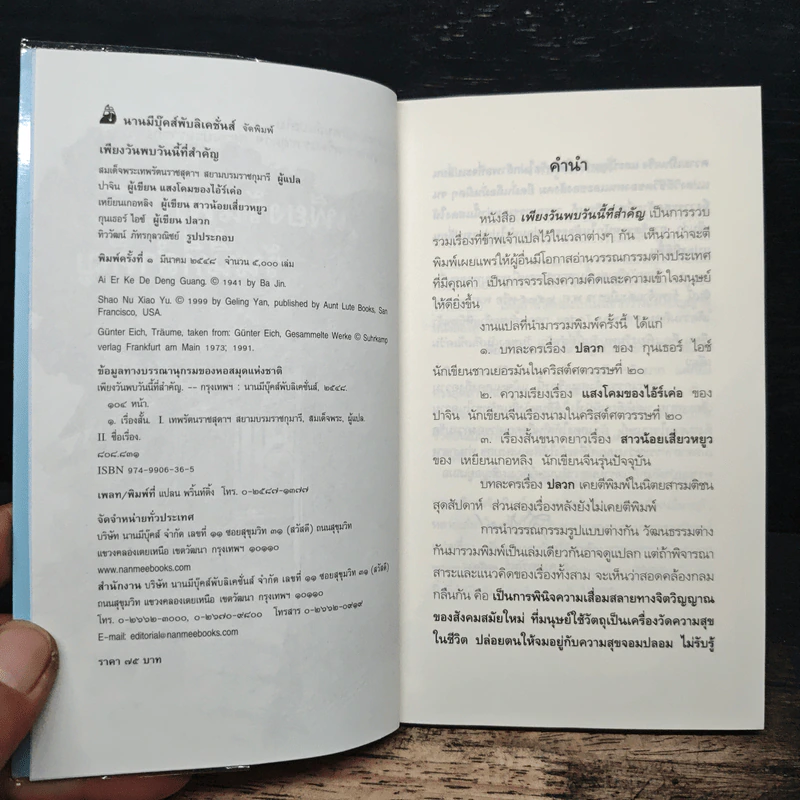 นานมีบุ๊คส์พับลิเคชั่นส์ จัดพิมพ์
เพียงวันพบวันนี้ที่สำคัญ
สมเด็จพระเทพรัตนราชสุดาฯ สยามบรมราชกุมารี ผู้แปล
ปาจิน ผู้เขียน แสงโคมของไอ้ร์เค่อ
เหยียนเกอหลิง ผู้เขียน สาวน้อยเสี่ยวหยูว
กุนเธอร์ ไอช์ ผู้เขียน ปลวก
ทิววัฒน์ ภัทรกุลวณิชย์ รูปประกอบ
พิมพ์ครั้งที่ ๑ มีนาคม ๒๕๔๘ จำนวน ๕,๐๐๐ เล่ม
Ai Er Ke De Deng Guang. © 1941 by Ba Jin.
Shao Nu Xiao Yu. © 1999 by Geling Yan, published by Aunt Lute Books, San
Francisco, USA.
Günter Eich, Träume, taken from: Günter Eich, Gesammelte Werke © Suhrkamp
verlag Frankfurt am Main 1973; 1991.
ข้อมูลทางบรรณานุกรมของหอสมุดแห่งชาติ
เพียงวันพบวันนี้ที่สำคัญ. -- กรุงเทพฯ : นานมีบุ๊คส์พับลิเคชั่นส์, ๒๕๔๘.
๑๐๔ หน้า.
๑. เรื่องสั้น. I. เทพรัตนราชสุดาฯ สยามบรมราชกุมารี, สมเด็จพระ, ผู้แปล.
II. ชื่อเรื่อง.
๘๐๘.๘๓๑
ISBN 974-9906-36-5
เพลท/พิมพ์ที่ แปลน พริ้นท์ติ้ง โทร. ๐-๒๕๘๗-๑๓๗๗
จัดจำหน่ายทั่วประเทศ
บริษัท นานมีบุ๊คส์ จำกัด เลขที่ ๑๑ ซอยสุขุมวิท ๓๑ (สวัสดี) ถนนสุขุมวิท
แขวงคลองเตยเหนือ เขตวัฒนา กรุงเทพฯ ๑๐๑๑๐
www.nanmeebooks.com
สำนักงาน บริษัท นานมีบุ๊คส์พับลิเคชั่นส์ จำกัด เลขที่ ๑๑ ซอยสุขุมวิท ๓๑ (สวัสดี)
ถนนสุขุมวิท แขวงคลองเตยเหนือ เขตวัฒนา กรุงเทพฯ ๑๐๑๑๐
โทร. ๐-๒๖๖๒-๓๐๐๐, ๐-๒๖๗๐-๙๘๐๐ โทรสาร ๐-๒๖๖๒-๐๙๑๙
E-mail: editorial@nanmeebooks.com
ราคา ๗๕ บาท
คำนำ
หนังสือ เพียงวันพบวันนี้ที่สำคัญ เป็นการรวบ
รวมเรื่องที่ข้าพเจ้าแปลไว้ในเวลาต่างๆ กัน เห็นว่าน่าจะตี
พิมพ์เผยแพร่ให้ผู้อื่นมีโอกาสอ่านวรรณกรรมต่างประเทศ
ที่มีคุณค่า เป็นการจรรโลงความคิดและความเข้าใจมนุษย์
ให้ดียิ่งขึ้น
งานแปลที่นำมารวมพิมพ์ครั้งนี้ ได้แก่
๑. บทละครเรื่อง ปลวก ของ กุนเธอร์ ไอช์
นักเขียนชาวเยอรมันในคริสต์ศตวรรษที่ ๒๐
๒. ความเรียงเรื่อง แสงโคมของไอ้ร์เค่อ ของ
ปาจิน นักเขียนจีนเรืองนามในคริสต์ศตวรรษที่ ๒๐
๓. เรื่องสั้นขนาดยาวเรื่อง สาวน้อยเสี่ยวหยูว
ของ เหยียนเกอหลิง นักเขียนจีนรุ่นปัจจุบัน
บทละครเรื่อง ปลวก เคยตีพิมพ์ในนิตยสารมติชน
สุดสัปดาห์ ส่วนสองเรื่องหลังยังไม่เคยตีพิมพ์
การนำวรรณกรรมรูปแบบต่างกัน วัฒนธรรมต่าง
กันมารวมพิมพ์เป็นเล่มเดียวกันอาจดูแปลก แต่ถ้าพิจารณา
สาระและแนวคิดของเรื่องทั้งสาม จะเห็นว่าสอดคล้องกลม
กลืนกัน คือ เป็นการพินิจความเสื่อมสลายทางจิตวิญญาณ
ของสังคมสมัยใหม่ ที่มนุษย์ใช้วัตถุเป็นเครื่องวัดความสุข
ในชีวิต ปล่อยตนให้จมอยู่กับความสุขจอมปลอม ไม่รับรู้